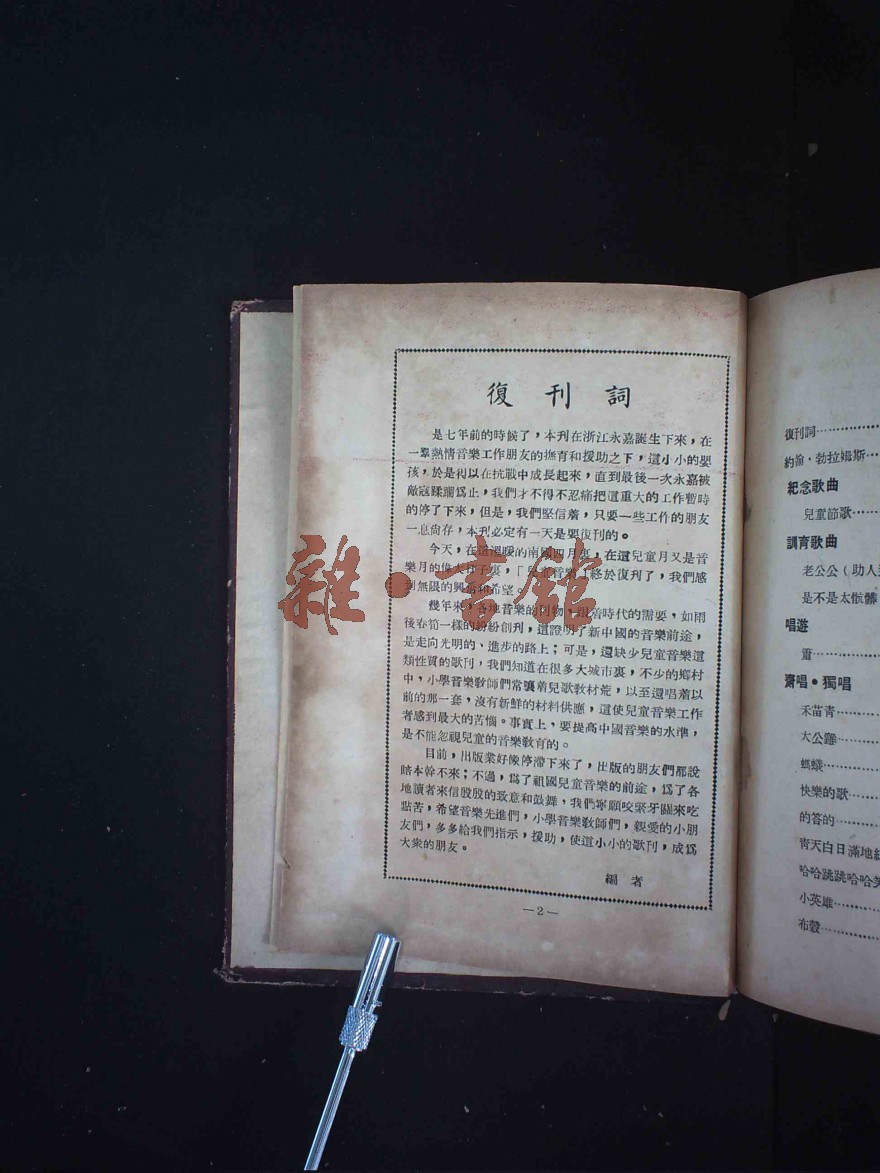 復刊詞
是七年前的時候了，本刊在浙江永嘉誕生下來，在
一羣熱情音樂工作朋友的撫育和援助之下，這小小的嬰
孩，於是得以在抗戰中成長起來，直到最後一次永嘉被
敵寇蹂躪爲止，我們才不得不忍痛把這重大的工作暫時
的停了下來，但是，我們堅信着，只要一些工作的朋友
一息尙存，本刊必定有一天是要復刊的。
今天，在這溫暖的南國四月裏，在這兒童月又是音
樂月的偉大日子裏，「兒童音樂」終於復刊了，我們感
到無限的興奮和希望。
幾年來，各地音樂的刊物，跟着時代的需要，如雨
後春筍一樣的紛紛創刊，這證明了新中國的音樂前途，
是走向光明的、進步的路上；可是，還缺少兒童音樂這
類性質的歌刊，我們知道在很多大城市裏，不少的鄉村
中，小學音樂敎師們常襲着兒歌敎材荒，以至還唱着以
前的那一套，沒有新鮮的材料供應，這使兒童音樂工作
者感到最大的苦惱。事實上，要提高中國音樂的水準，
是不能忽視兒童的音樂敎育的。
目前，出版業好像停滯下來了，出版的朋友們都說
賠本幹不來；不過，爲了祖國兒童音樂的前途，爲了各
地讀者來信殷殷的致意和鼓舞，我們寧願咬緊牙關來吃
點苦，希望音樂先進們，小學音樂敎師們，親愛的小朋
友們，多多給我們指示，援助，使這小小的歌刊，成爲
大衆的朋友。
編者
—2—
復刊詞
約翰·勃拉姆斯
紀念歌曲
兒童節歌
訓育歌曲
老公公（助人
是不是太骯髒
唱遊
齋唱·獨唱
禾苗靑
大公雞
螞蟻
快樂的歌
的答的
靑天白日滿地
哈哈跳跳哈哈笑
小英雄
布穀
雜·書館